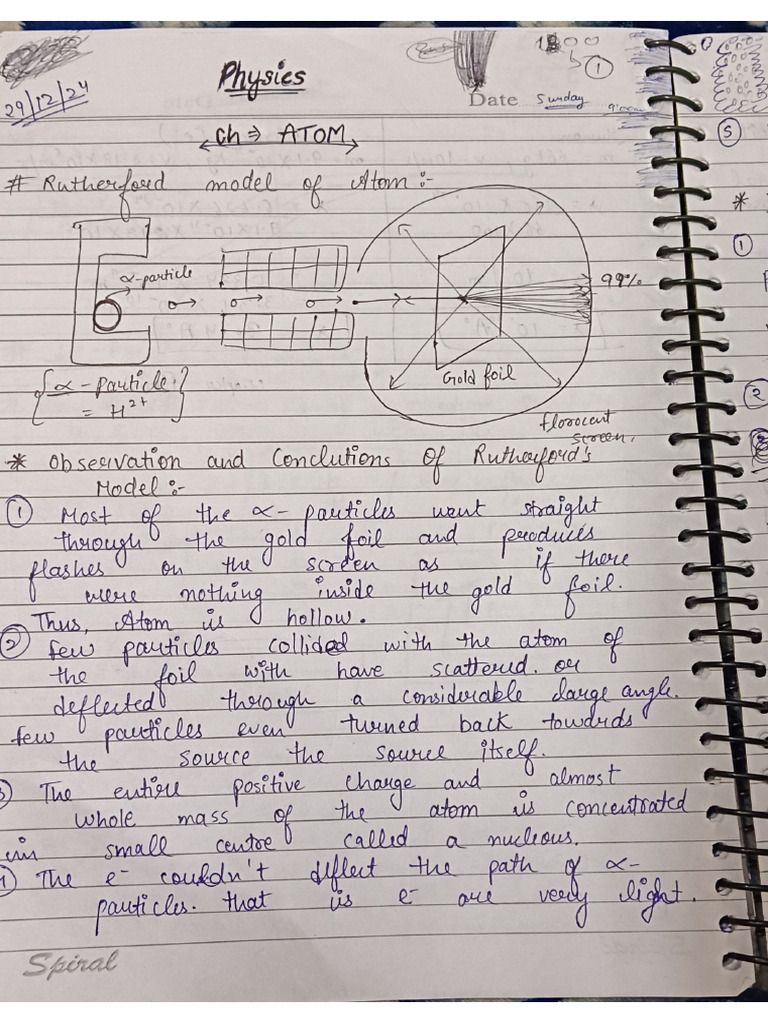 1800
①
29/12/24
Physics
Date Sunday
Ch ⇒ ATOM
# Rutherford model of Atom :-
α-particle
99%
Gold foil
{α - particle.
= H²⁺}
florocent
screen.
* Observation and Conclutions of Rutherford's
Model :-
① Most of the α- particles went straight
through the gold foil and produces
flashes on the screen as if there
were nothing inside the gold foil.
Thus, Atom is hollow.
② few particles collided with the atom of
the foil with have scattered. or
deflected through a considerable large angle.
few particles even turned back towards
the source the source itself.
The entire positive charge and almost
whole mass of the atom is concentrated
in small centre called a nucleous.
The e⁻ couldn't dflect the path of α-
particles. that is e⁻ are very light.
Spiral
5
*
①
2